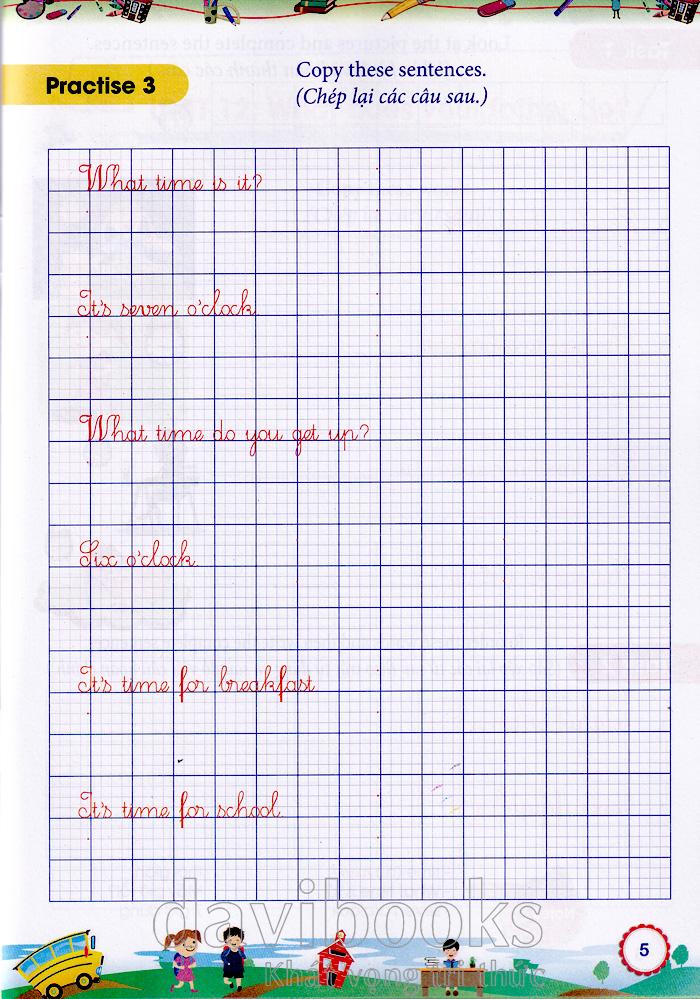 Practise 3
Copy these sentences.
(Chép lại các câu sau.)
What time is it?
It's seven o'clock.
What time do you get up?
Six o'clock.
It's time for breakfast.
It's time for school.
davibooks
Khát vọng tri thức
5